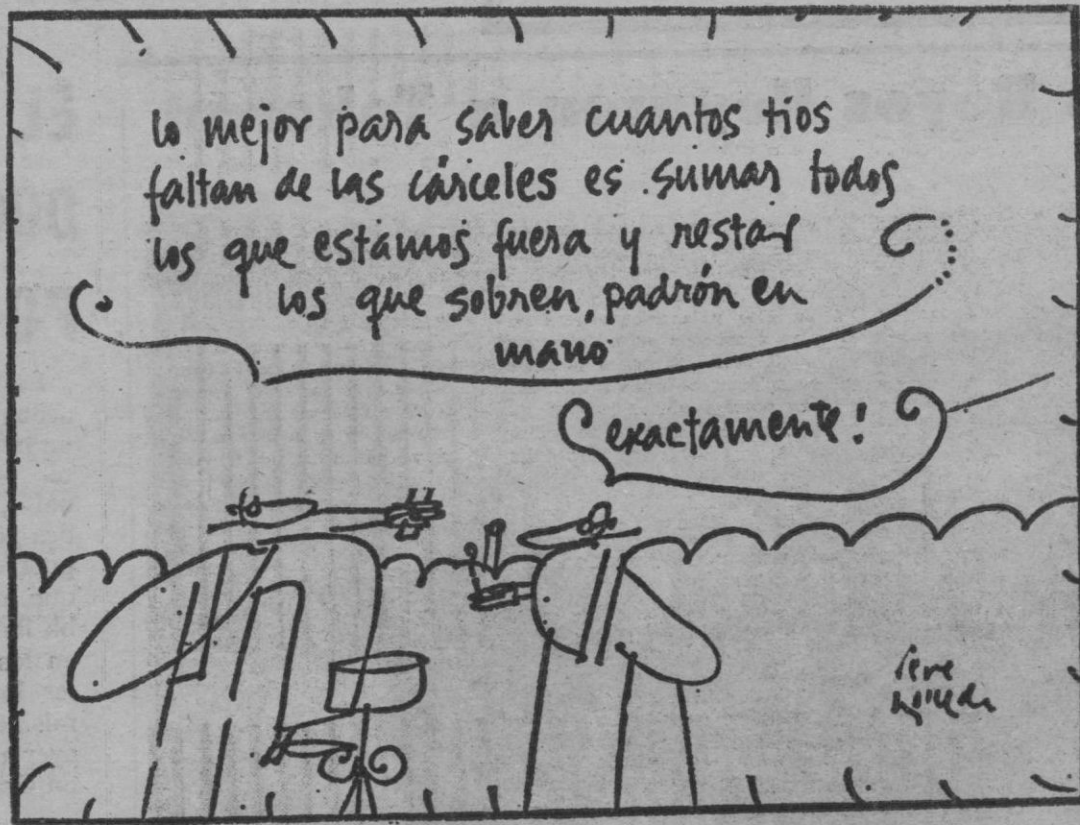 lo mejor para saber cuantos tios
faltan de las cárceles es sumar todos
los que estamos fuera y restar
los que sobren, padrón en
mano
exactamente!